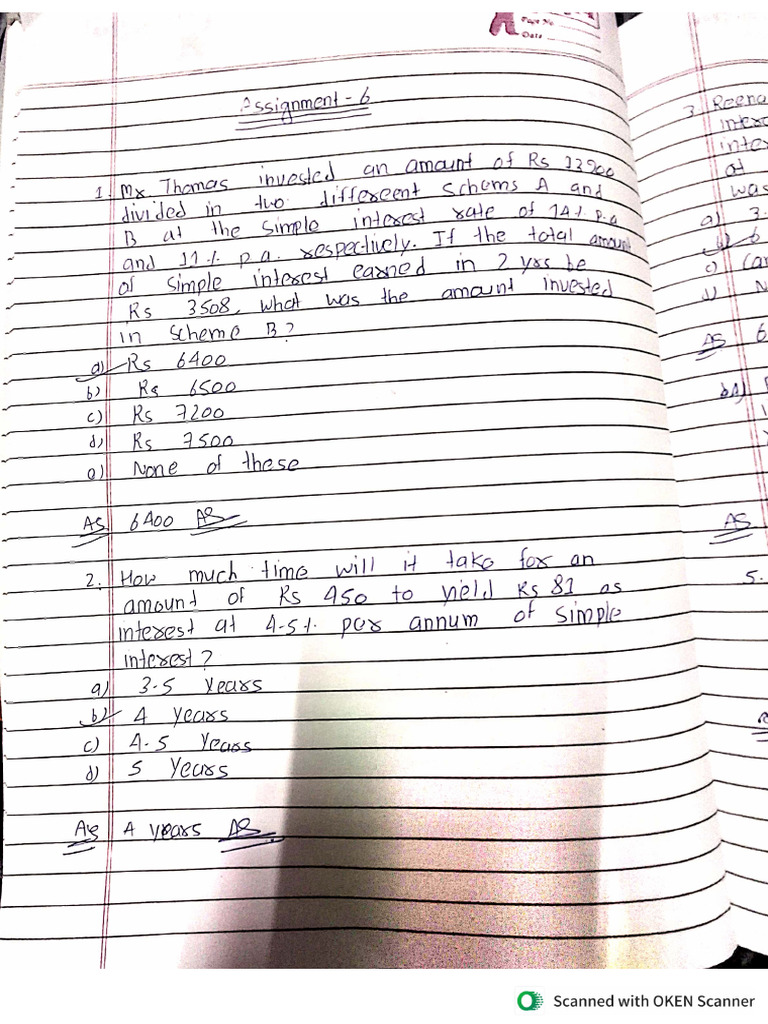 Page No
Date
Assignment - 6
1. Mr. Thomas invested an amount of Rs 13900
divided in two different Schems A and
B at the simple interest rate of 14% p.a
and 11% p.a. respectively. If the total amount
of simple interest earned in 2 yrs be
Rs 3508, what was the amount invested
in Scheme B?
a) Rs 6400
b) Rs 6500
c) Rs 7200
d) Rs 7500
e) None of these
As 6400 As
2. How much time will it take for an
amount of Rs 450 to yield Rs 81 as
interest at 4.5% per annum of simple
interest?
a) 3.5 Years
b) 4 Years
c) 4.5 Years
d) 5 Years
As 4 years As
3. Reena
interes
at
was
a) 3.
b) 6
c) Can
d) N
As 6
As
5.
Scanned with OKEN Scanner